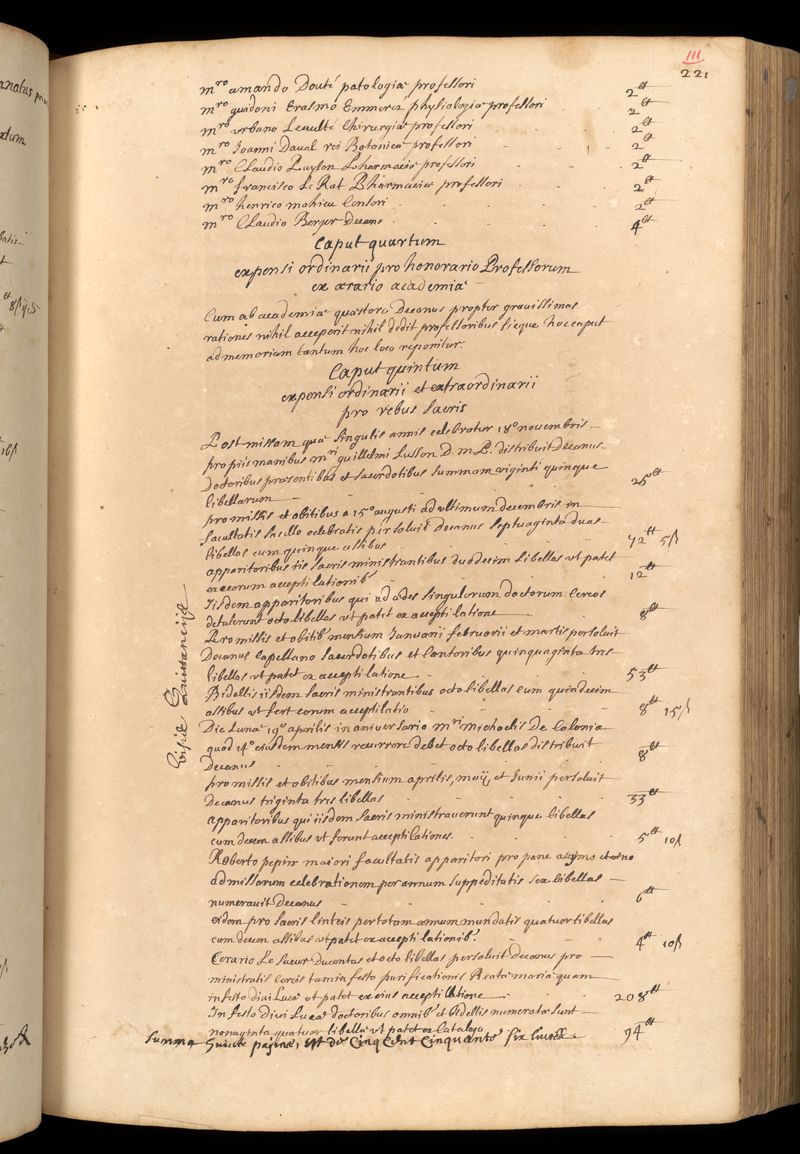 III
221
mro amando Douté patologiæ professori 2tt
mro guidoni Erasmo Emmerez physiologiæ professori 2tt
mro urbano Leaulté Chirurgiæ professori 2tt
mro Joanni Daual rei Botanicæ professori 2tt
mro Claudio Puylon Pharmaciæ professori 2tt
mro francisco Le Rat Pharmaciæ professori 2tt
mro henrico mahieu Censori 2tt
mro Claudio Berger Decano 4tt
Caput quartum
expensi ordinarii pro honorario Professorum
ex ærario academiæ
Cum ab academiæ quæstore Decanus propter grauissimas
rationes nihil acceperit nihil dedit professoribus sicque hoc caput
ad memoriam tantum hoc loco reponitur.
Caput quintum
expensi ordinarii et extraordinarii
pro rebus sacris
Post missam quæ singulis annis celebratur 18o novembris
pro piis manibus mri guillelmi Lusson D. m. P. distribuit Decanus
Doctoribus præsentibus et sacerdotibus summam viginti quinque
libellarum 25tt
pro missis et obitibus a 15o augusti ad ultimum decembris in
facultatis sacello celebratis persoluit Decanus septuaginta duas
libellas cum quinque assibus 72tt 5ß
apparitoribus iis sacris ministrantibus duodecim libellas ut patet
ex eorum acceptilationib' 12tt
Iisdem apparitoribus qui ad ædes singulorum doctorum Cereos
detulerunt octo libellas ut patet ex acceptilatione 8tt
Pro missis et obitib' mensium Januarii februarii et martis persoluit
Decanus Capellano sacerdotibus et Cantoribus quinquaginta tres
libellas ut patet ex acceptilatione 53tt
Bidellis iisdem sacris ministrantibus octo libellas cum quindecim
assibus ut fert eorum acceptilatio 8tt 15ß
Die Lunæ 19o aprilis in aniversario mri michaelis De Colonia
quod 14o eiusdem mensis recurrere debet octo libellas distribuit
Decanus 8tt
pro missis et obitibus mensium aprilis, maij, et Junii persoluit
Decanus triginta tres libellas 33tt
apparitoribus qui iisdem sacris ministrauerunt quinque libellas
cum decem assibus ut ferunt acceptilationes. 5tt 10ß
Roberto pepin maiori facultatis apparitori pro pane azymo et vino
ad missarum celebrationem per annum suppeditatis sex libellas
numerauit Decanus 6tt
eidem pro sacris linteis per totam annum mundatis quatuor libellas
cum decem assibus ut patet ex acceptilationib'. 4tt 10ß
Cerario Le sueur Ducentas et octo libellas persoluit Decanus pro
ministratis cereis tam in festo purificationis Beatæ mariæ quam
in festo diui Lucæ ut patet ex eius acceptilatione 208tt
In festo Diui Lucæ doctoribus omnib' et Bidellis numeratæ sunt
nonaginta quatuor libellæ ut patet ex Catalogo 94tt
Summa paginæ, est de Cinq Cent Cinquante six liures